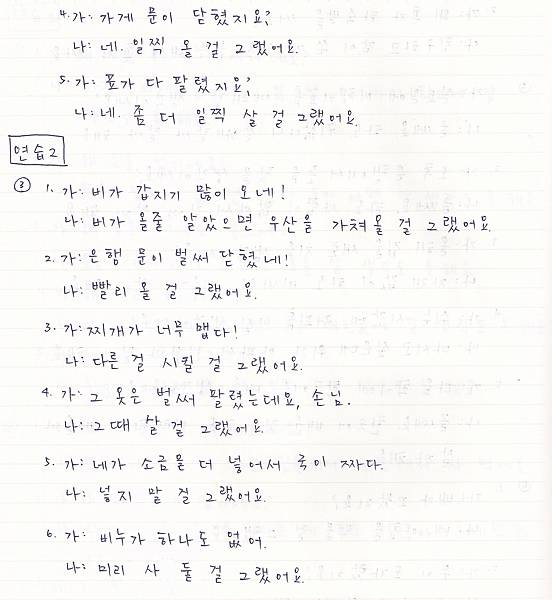 4. 가: 가게 문이 닫혔지요?
나: 네. 일찍 올 걸 그랬어요.
5. 가: 표가 다 팔렸지요?
나: 네. 좀 더 일찍 살 걸 그랬어요.
연습2
③ 1. 가: 비가 갑지기 많이 오네!
나: 비가 올줄 알았으면 우산을 가져올 걸 그랬어요.
2. 가: 은행 문이 벌써 닫혔네!
나: 빨리 올 걸 그랬어요.
3. 가: 찌개가 너무 맵다!
나: 다른 걸 시킬 걸 그랬어요.
4. 가: 그 옷은 벌써 팔렸는데요, 손님.
나: 그때 살 걸 그랬어요.
5. 가: 네가 소금을 더 넣어서 국이 짜다.
나: 넣지 말 걸 그랬어요.
6. 가: 비누가 하나도 없어.
나: 미리 사 둘 걸 그랬어요.